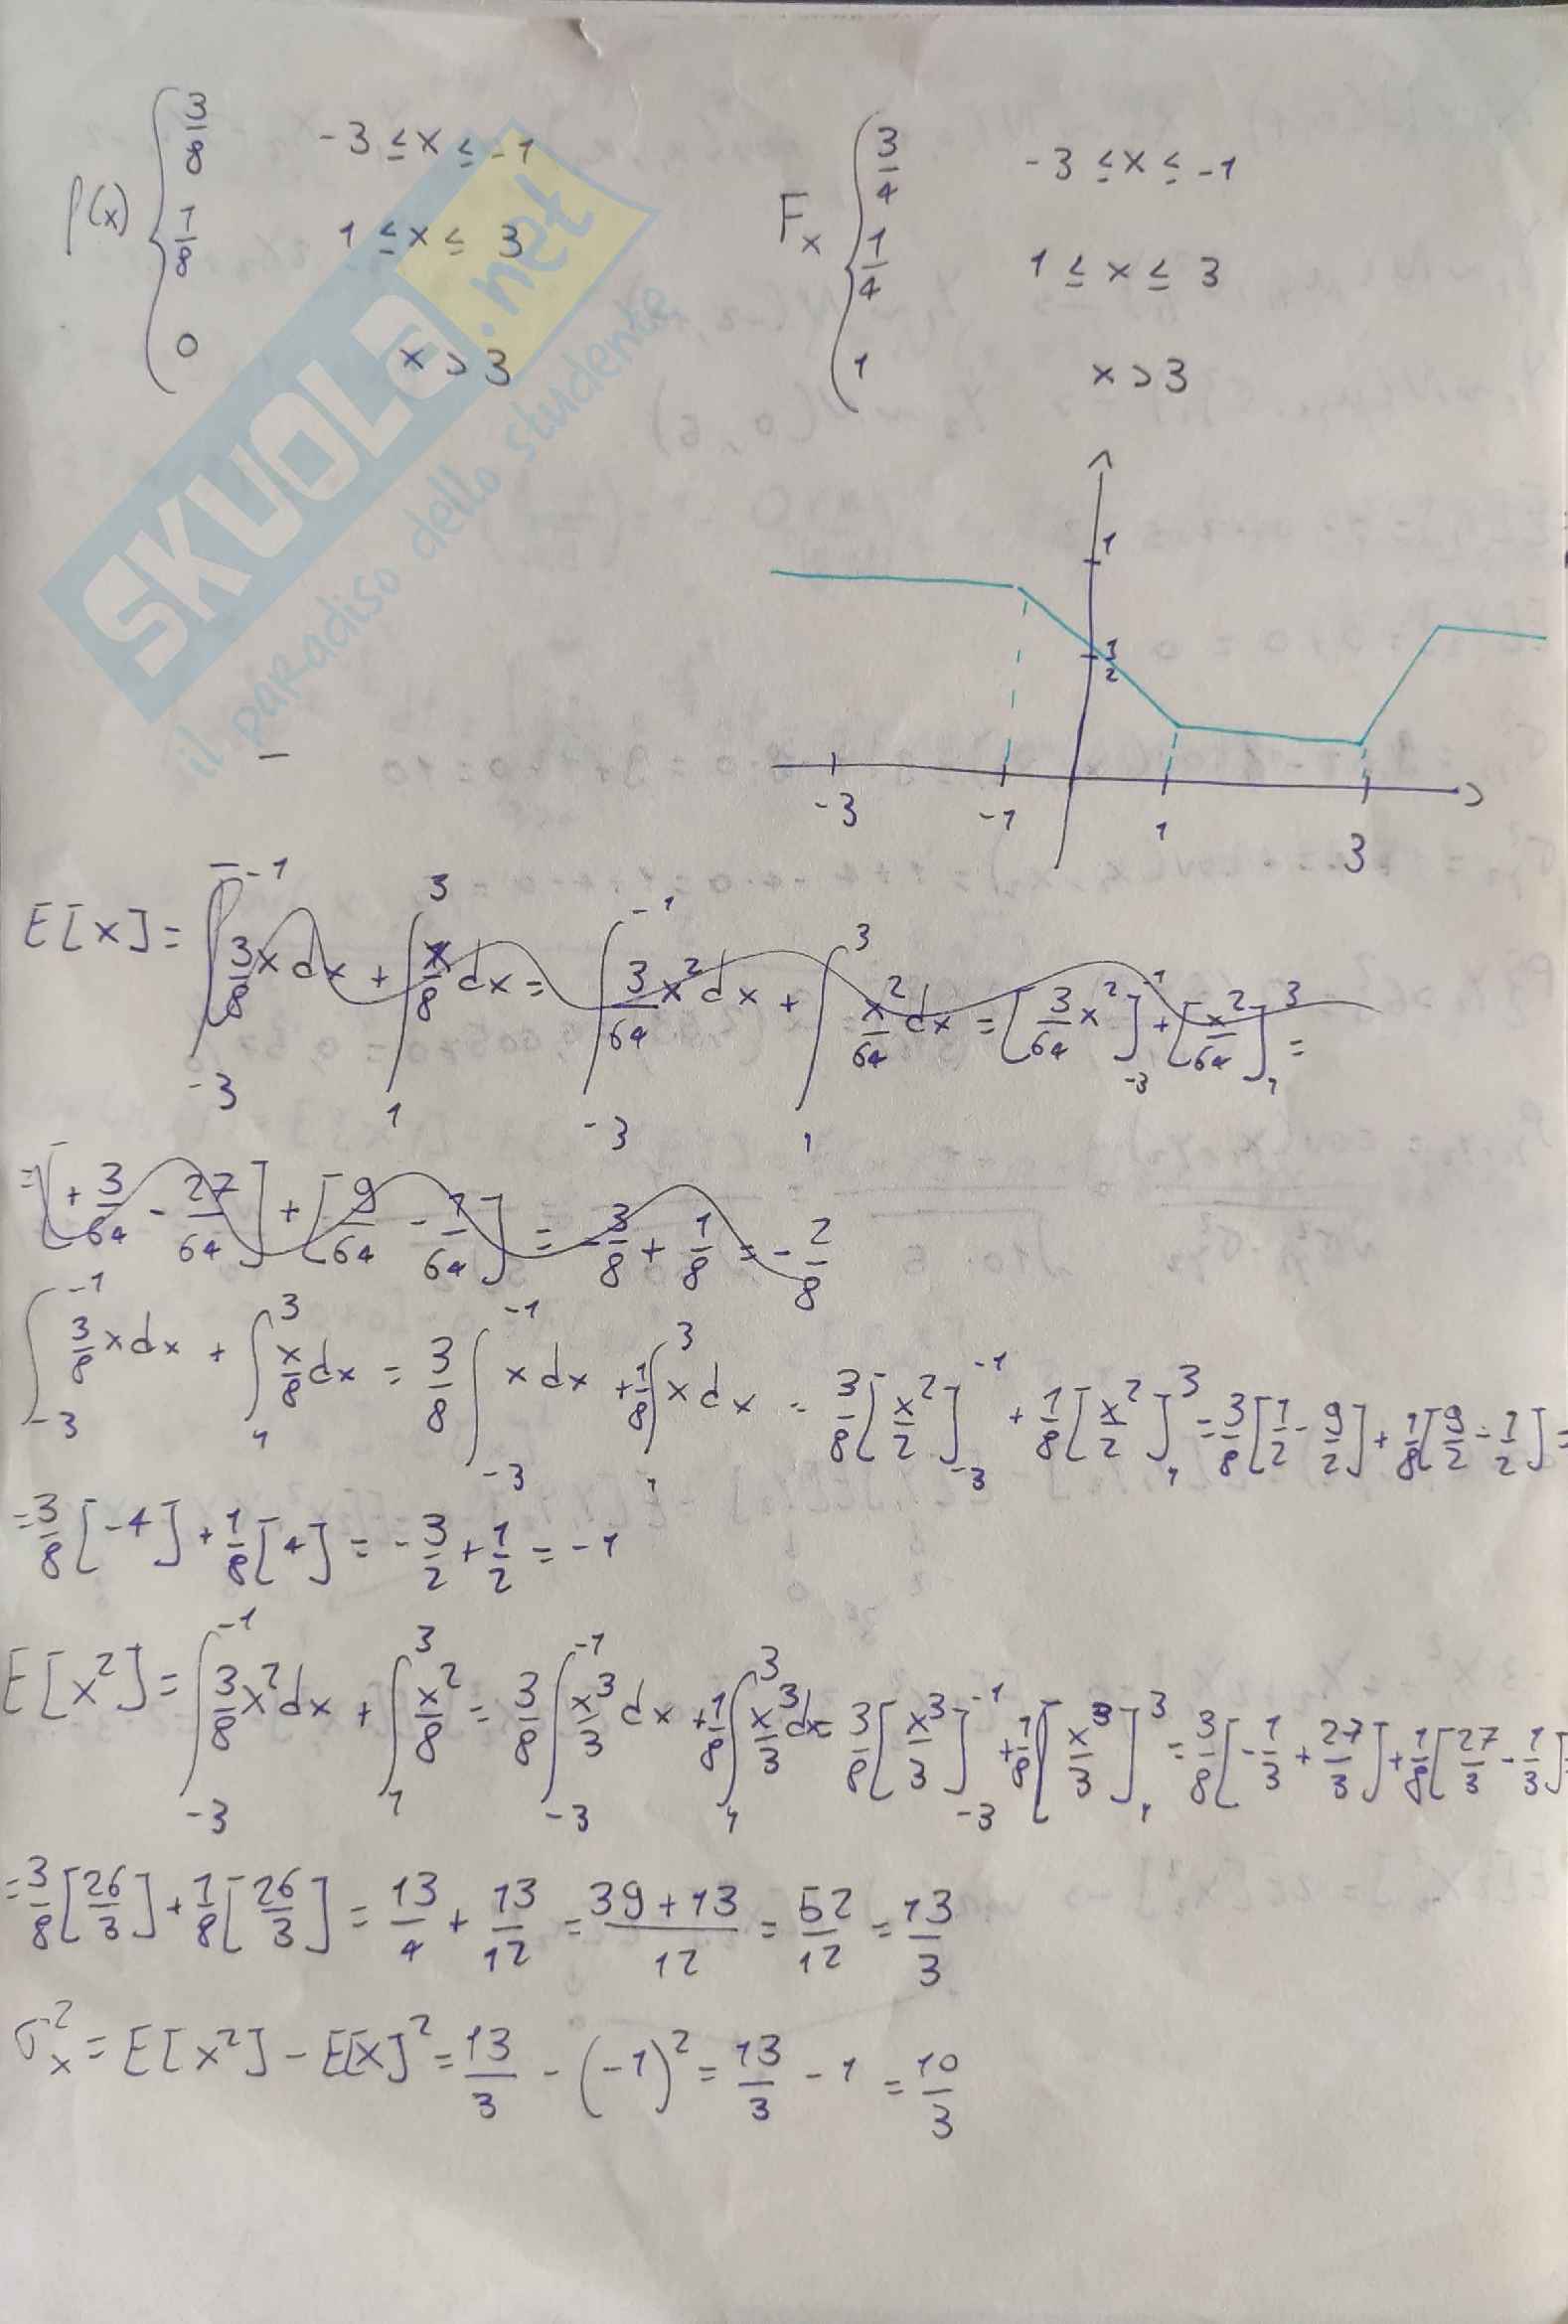 f(x) { 3/8 -3 ≤ x ≤ -1
1/8 1 ≤ x ≤ 3
0 x > 3
F_x { 3/4 -3 ≤ x ≤ -1
1/4 1 ≤ x ≤ 3
1 x > 3
SKUOLA.net
il paradiso dello studente
1
1/2
-3 -1 1 3
E[x] = ∫_{-3}^{-1} 3/8 x dx + ∫_{1}^{3} x/8 dx = ∫_{-3}^{-1} 3/64 x² dx + ∫_{1}^{3} x²/64 dx = [3/64 x²]_{-3}^{-1} + [x²/64]_{1}^{3} =
= [+ 3/64 - 27/64] + [9/64 - 1/64] = -3/8 + 1/8 = -2/8
∫_{-3}^{-1} 3/8 x dx + ∫_{1}^{3} x/8 dx = 3/8 ∫_{-3}^{-1} x dx + 1/8 ∫_{1}^{3} x dx = 3/8 [x²/2]_{-3}^{-1} + 1/8 [x²/2]_{1}^{3} = 3/8 [1/2 - 9/2] + 1/8 [9/2 - 1/2] =
= 3/8 [-4] + 1/8 [4] = -3/2 + 1/2 = -1
E[x²] = ∫_{-3}^{-1} 3/8 x² dx + ∫_{1}^{3} x²/8 = 3/8 ∫_{-3}^{-1} x³/3 dx + 1/8 ∫_{1}^{3} x³/3 dx = 3/8 [x³/3]_{-3}^{-1} + 1/8 [x³/3]_{1}^{3} = 3/8 [-1/3 + 27/3] + 1/8 [27/3 - 1/3] =
= 3/8 [26/3] + 1/8 [26/3] = 13/4 + 13/12 = 39 + 13/12 = 52/12 = 13/3
σ²_x = E[x²] - E[x]² = 13/3 - (-1)² = 13/3 - 1 = 10/3